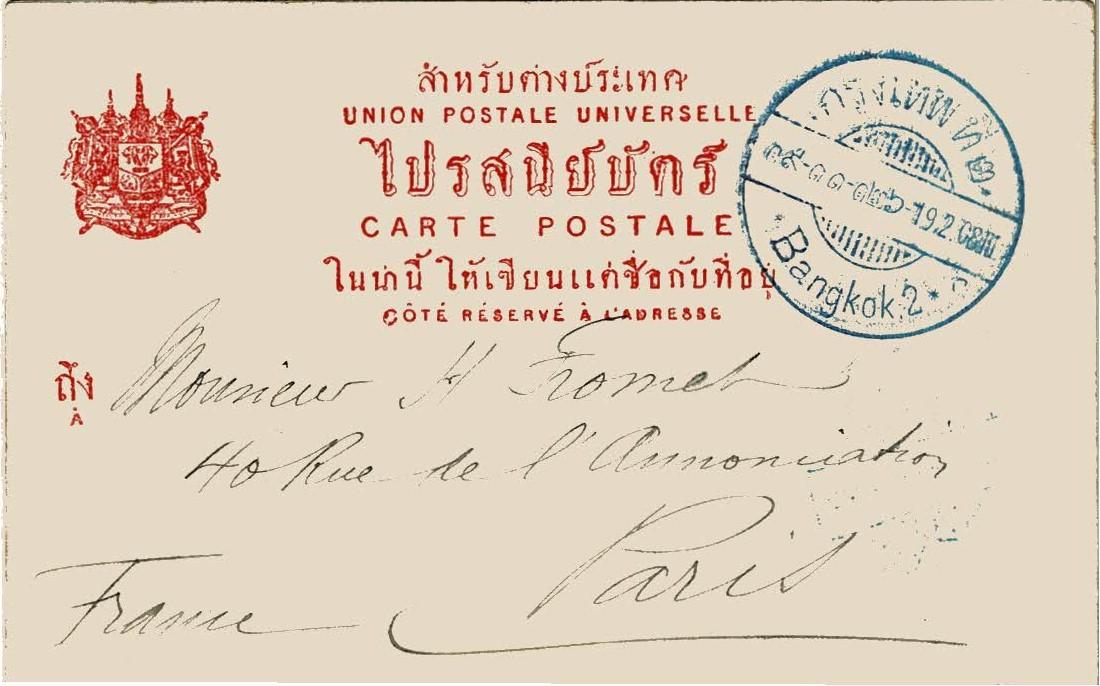 สำหรับต่างประเทศ
UNION POSTALE UNIVERSELLE
ไปรสนีย์บัตร์
CARTE POSTALE
ในน่านี้ ให้เขียนแต่ชื่อกับที่อยู่
CÔTÉ RÉSERVÉ À L'ADRESSE
กรุงเทพฯ ที่ ๒
๑๙-๑๑-๑๒๖-19.2.08
Bangkok 2
ถึง
À
Monsieur H Fromet
40 Rue de l'Annonciation
Paris
France